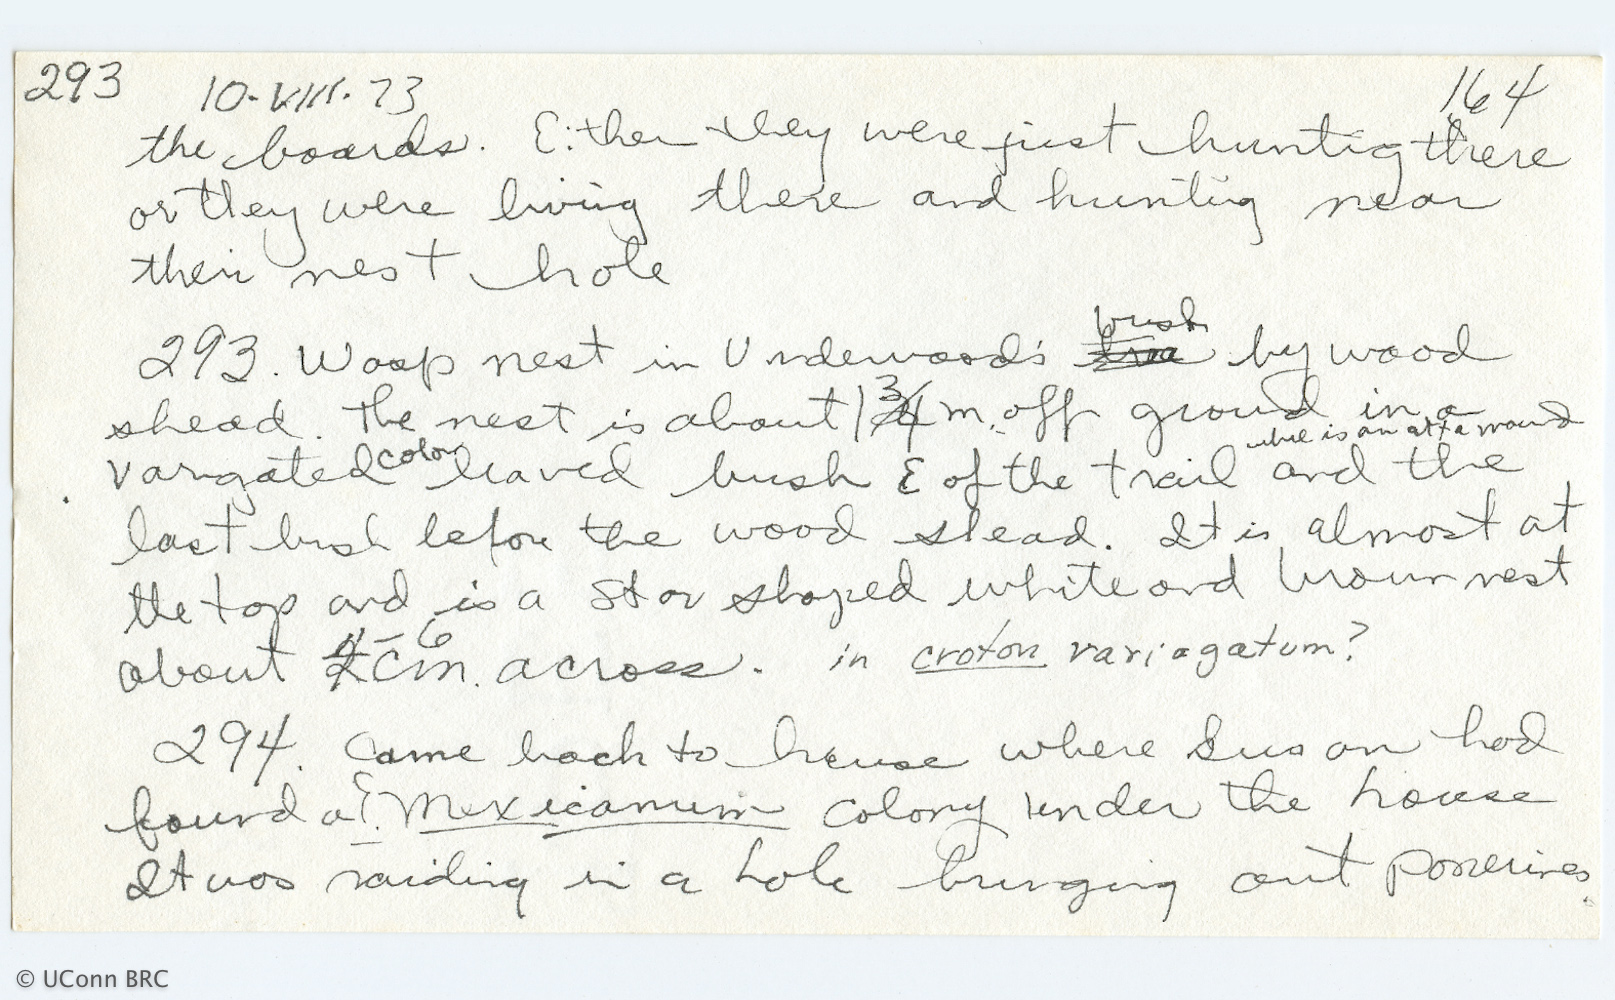 293 10-VIII-73 164
the boards. Either they were just hunting there
or they were living there and hunting near
their nest hole
293. Wasp nest in Underwood's bush by wood
shead. the nest is about 1 3/4 m. off ground in a
varigated color leaved bush E of the trail where is an atta mound and the
last bush before the wood shead. It is almost at
the top and is a star shaped white and brown nest
about 4-6 cm. across. in croton variagatum?
294. Came back to house where Susan had
found a E. Mexicanum colony under the house
It was raiding in a hole bringing out ponerines.
© UConn BRC